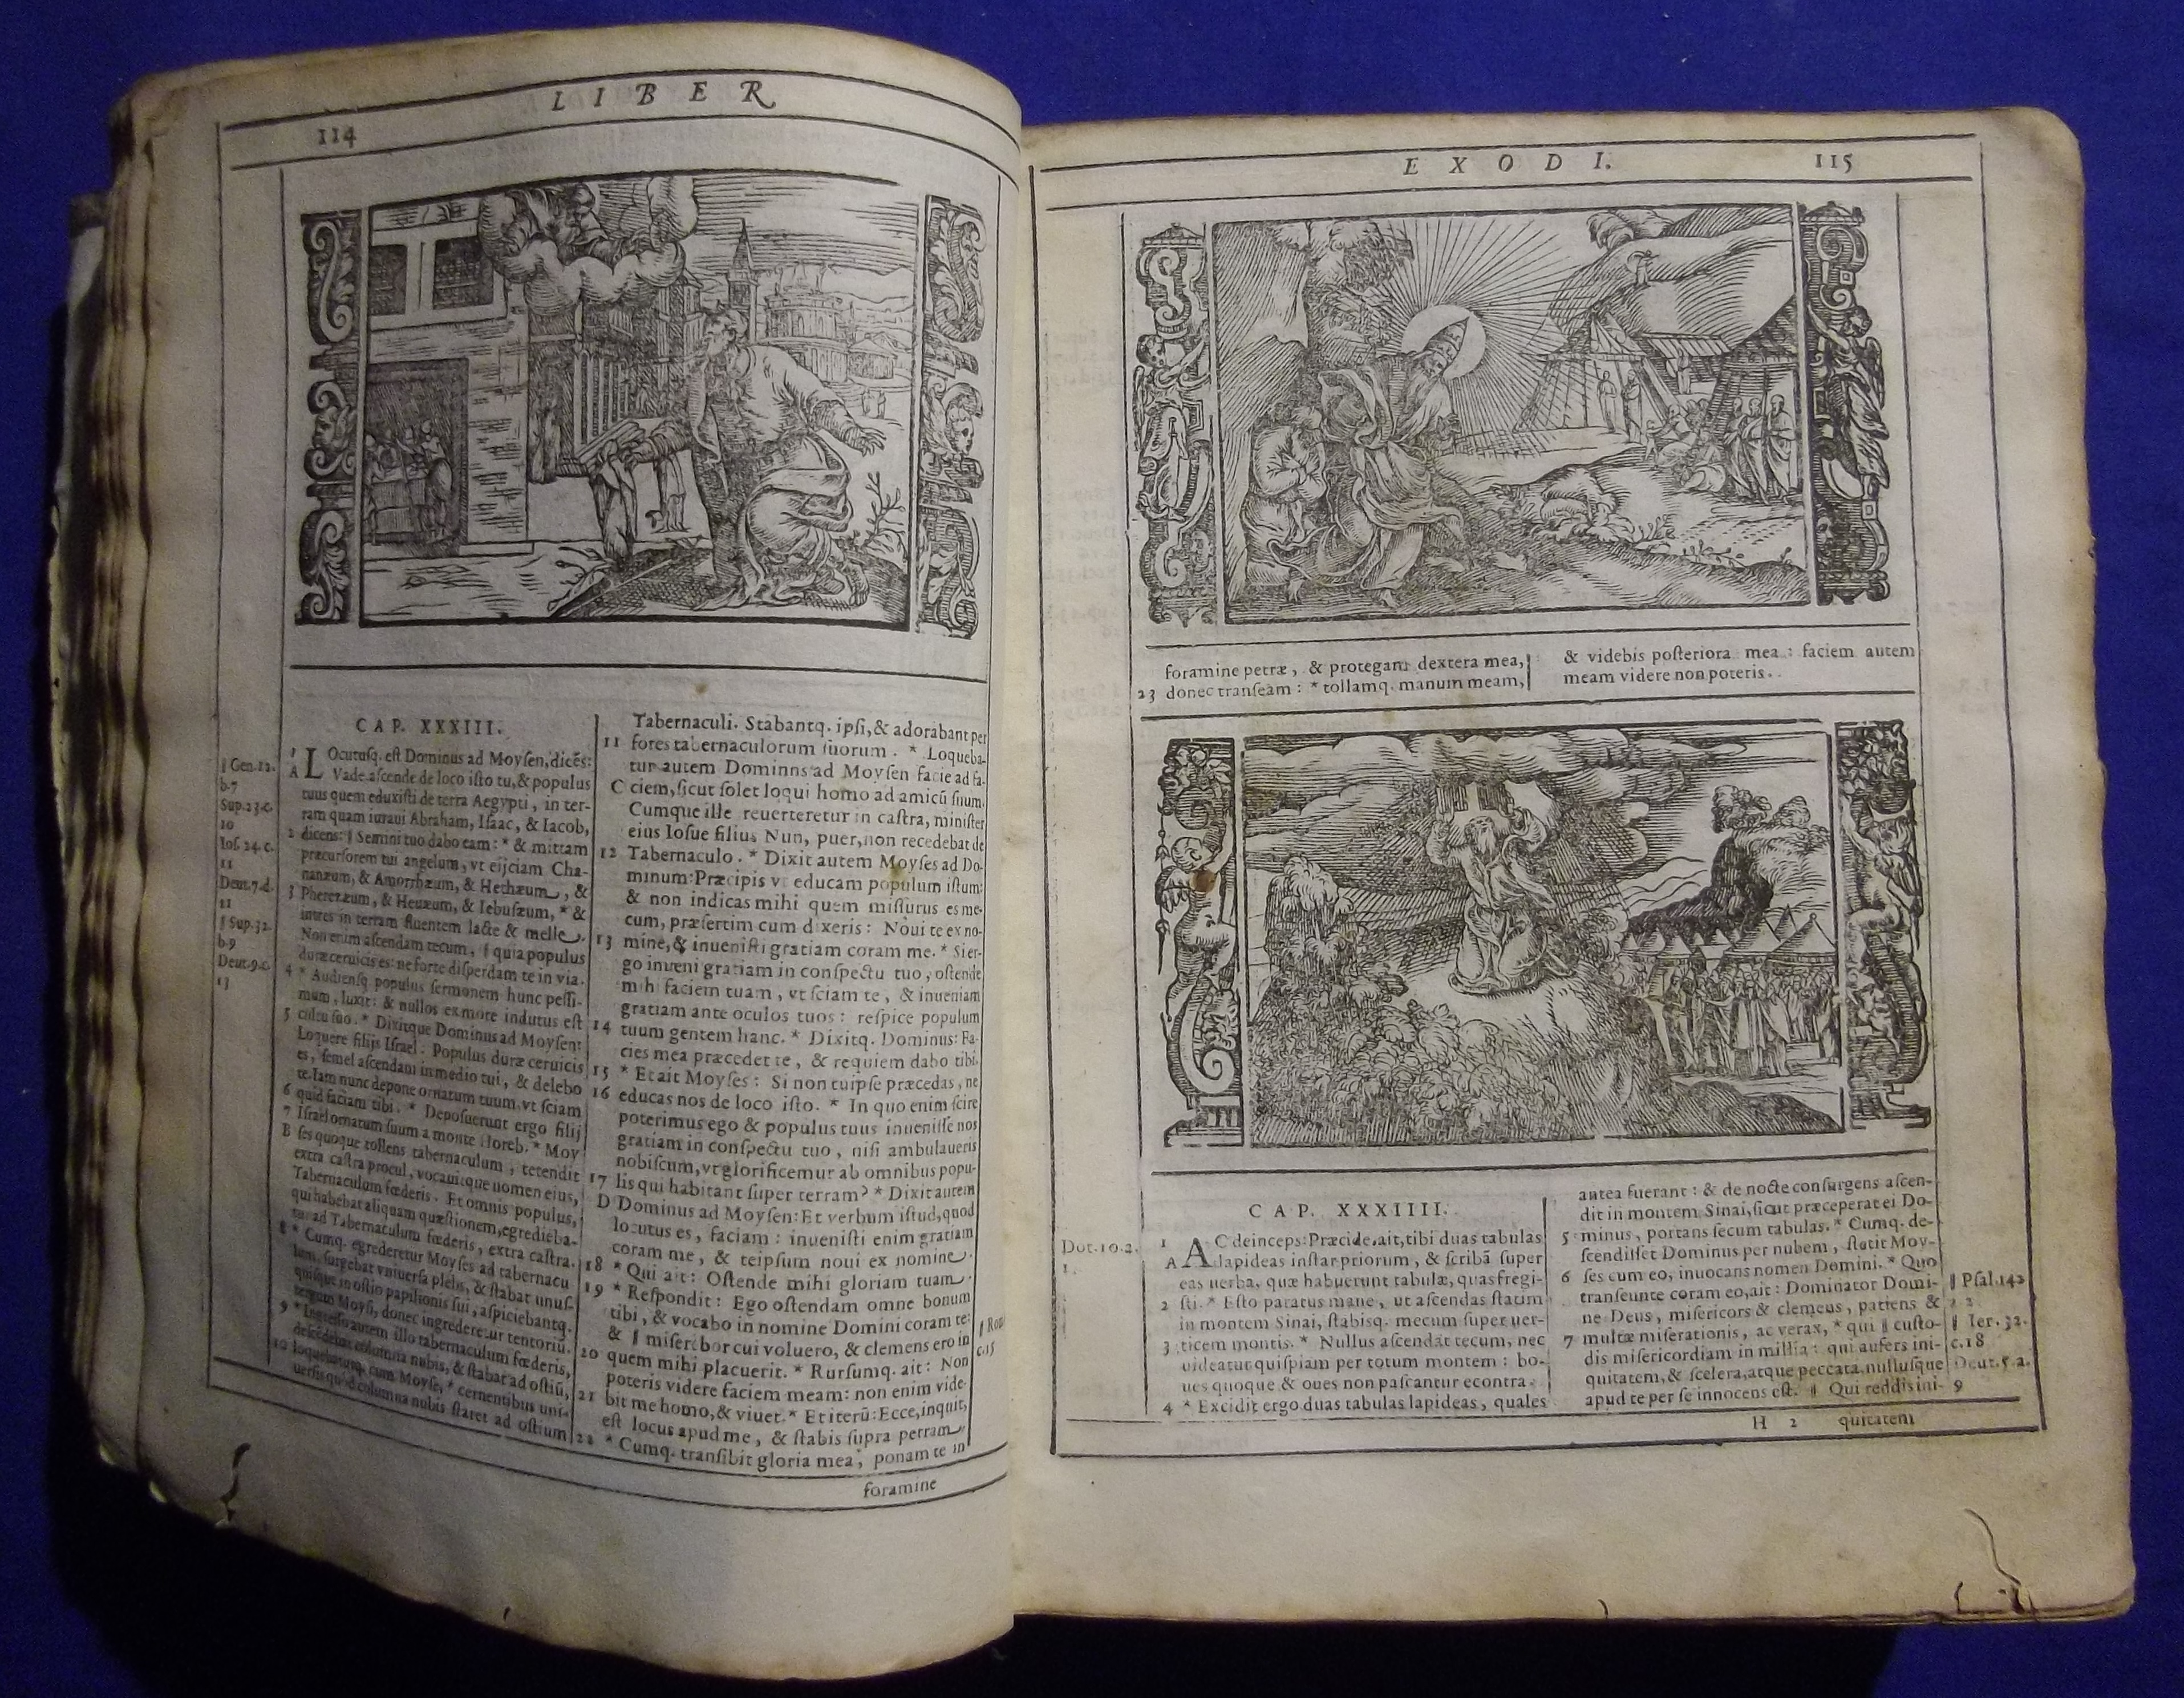 LIBER
114
CAP. XXXIII.
1 LOcutusq. est Dominus ad Moysen, dicēs:
A Vade ascende de loco isto tu, & populus
tuus quem eduxisti de terra Aegypti, in ter-
ram quam iuraui Abraham, Isaac, & Iacob,
2 dicens: ¶ Semini tuo dabo eam: * & mittam
præcursorem tui angelum, vt eijciam Cha-
nanæum, & Amorrhæum, & Hethæum, &
3 Pherezæum, & Heuæum, & Iebusæum, * &
intres in terram fluentem lacte & melle.
Non enim ascendam tecum, ¶ quia populus
duræ ceruicis es: ne forte disperdam te in via.
4 * Audiensq. populus sermonem hunc pessi-
mum, luxit: & nullos ex more indutus est
5 cultu suo. * Dixitque Dominus ad Moysen:
Loquere filijs Israel: Populus duræ ceruicis
es, semel ascendam in medio tui, & delebo
te. Iam nunc depone ornatum tuum, vt sciam
6 quid faciam tibi. * Deposuerunt ergo filij
7 Israel ornatum suum a monte Horeb. * Moy
B ses quoque tollens tabernaculum, tetendit
extra castra procul, vocauitque nomen eius,
Tabernaculum fœderis. Et omnis populus,
qui habebat aliquam quæstionem, egredieba-
tur ad Tabernaculum fœderis, extra castra.
8 * Cumq. egrederetur Moyses ad tabernacu
lum, surgebat vniuersa plebs, & stabat unus-
quisque in ostio papilionis sui, aspiciebantq.
tergum Moysi, donec ingrederetur tentoriū.
9 * Ingresso autem illo tabernaculum fœderis,
descēdebat columna nubis, & stabat ad ostiū,
10 loquebaturq. cum Moyse, * cernentibus uni-
uersis quod columna nubis staret ad ostium
¶ Gen. 12.
b. 7
Sup. 23. c.
10
Ios. 24. c.
11
Deut. 7. d.
11
¶ Sup. 32.
b. 9
Deut. 9. c.
13
Tabernaculi. Stabantq. ipsi, & adorabant per
11 fores tabernaculorum suorum. * Loqueba-
tur autem Dominns ad Moysen facie ad fa-
C ciem, sicut solet loqui homo ad amicū suum.
Cumque ille reuerteretur in castra, minister
eius Iosue filius Nun, puer, non recedebat de
12 Tabernaculo. * Dixit autem Moyses ad Do-
minum: Præcipis vt educam populum istum:
& non indicas mihi quem missurus es me-
cum, præsertim cum dixeris: Noui te ex no-
13 mine, & inuenisti gratiam coram me. * Si er-
go inueni gratiam in conspectu tuo, ostende
mihi faciem tuam, vt sciam te, & inueniam
gratiam ante oculos tuos: respice populum
14 tuum gentem hanc. * Dixitq. Dominus: Fa-
cies mea præcedet te, & requiem dabo tibi.
15 * Et ait Moyses: Si non tu ipse præcedas, ne
16 educas nos de loco isto. * In quo enim scire
poterimus ego & populus tuus inuenisse nos
gratiam in conspectu tuo, nisi ambulaueris
nobiscum, vt glorificemur ab omnibus popu-
17 lis qui habitant super terram? * Dixit autem
D Dominus ad Moysen: Et verbum istud, quod
locutus es, faciam: inuenisti enim gratiam
coram me, & teipsum noui ex nomine.
18 * Qui ait: Ostende mihi gloriam tuam.
19 * Respondit: Ego ostendam omne bonum
tibi, & vocabo in nomine Domini coram te:
& ¶ miserebor cui voluero, & clemens ero in
20 quem mihi placuerit. * Rursumq. ait: Non
poteris videre faciem meam: non enim vide-
21 bit me homo, & viuet. * Et iterū: Ecce, inquit,
est locus apud me, & stabis supra petram.
22 * Cumq. transibit gloria mea, ponam te in
¶ Rom
c. 15
foramine
EXODI.
115
foramine petræ, & protegam dextera mea,
23 donec transeam: * tollamq. manum meam,
& videbis posteriora mea: faciem autem
meam videre non poteris.
CAP. XXXIIII.
1 AC deinceps: Præcide, ait, tibi duas tabulas
A lapideas instar priorum, & scribā super
eas uerba, quæ habuerunt tabulæ, quas fregi-
2 sti. * Esto paratus mane, ut ascendas statim
in montem Sinai, stabisq. mecum super uer-
3 ticem montis. * Nullus ascendat tecum, nec
videatur quispiam per totum montem: bo-
ues quoque & oues non pascantur econtra.
4 * Excidit ergo duas tabulas lapideas, quales
Dut. 10. 2.
1.
antea fuerant: & de nocte consurgens ascen-
dit in montem Sinai, sicut præceperat ei Do-
5 minus, portans secum tabulas. * Cumq. de-
scendisset Dominus per nubem, stetit Moy-
6 ses cum eo, inuocans nomen Domini. * Quo
transeunte coram eo, ait: Dominator Domi-
ne Deus, misericors & clemens, patiens &
7 multæ miserationis, ac verax, * qui ¶ custo-
dis misericordiam in millia: qui aufers ini-
quitatem, & scelera, atque peccata, nullusque
apud te per se innocens est. ¶ Qui reddis ini-
¶ Psal. 142
2
¶ Ier. 32.
c. 18
Deut. 5. a.
9
H 2 quitatem